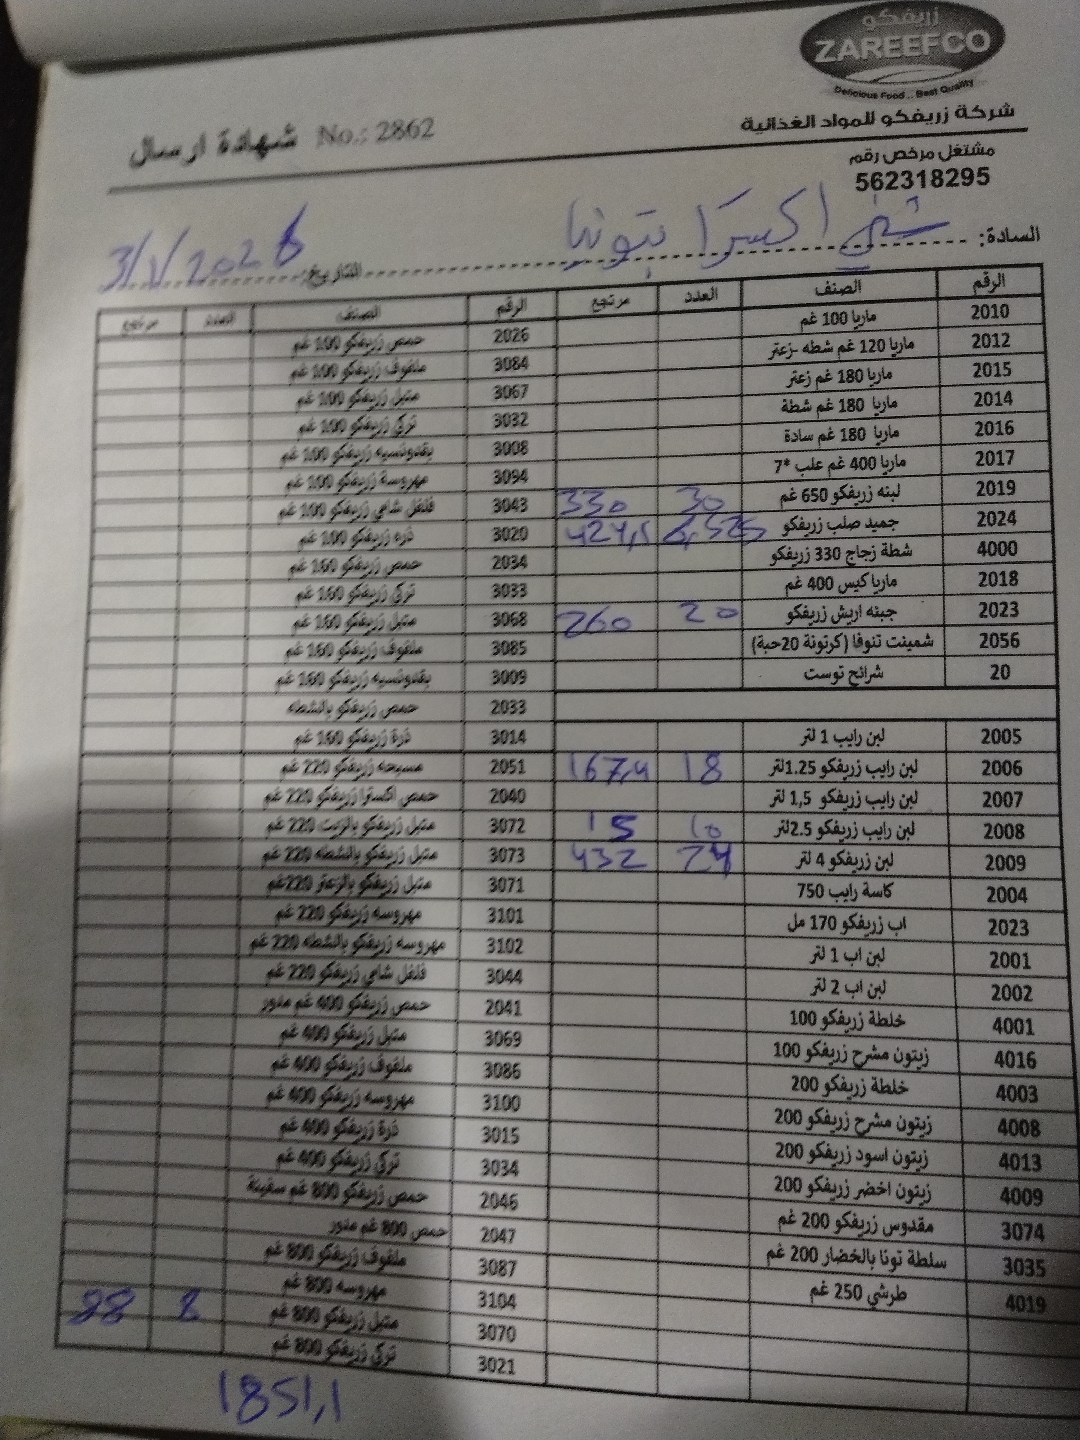 زريفكو
ZAREEFCO
Delicious Food .. Best Quality
شركة زريفكو للمواد الغذائية
شهادة ارسال No.: 2862
مشتغل مرخص رقم
562318295
السادة: اكسترا بتونيا
التاريخ: 3/1/2026
الرقم الصنف العدد مرتجع الرقم الصنف العدد مرتجع
2010 ماريا 100 غم 2026 حمص زريفكو 100 غم
2012 ماريا 120 غم شطه -زعتر 3084 ملفوف زريفكو 100 غم
2015 ماريا 180 غم زعتر 3067 متبل زريفكو 100 غم
2014 ماريا 180 غم شطة 3032 تركي زريفكو 100 غم
2016 ماريا 180 غم سادة 3008 بقدونسيه زريفكو 100 غم
2017 ماريا 400 غم علب *7 3094 مهروسة زريفكو 100 غم
2019 لبنه زريفكو 650 غم 30 330 3043 فلفل شامي زريفكو 100 غم
2024 جميد صلب زريفكو 424,1 3020 ذره زريفكو 100 غم
4000 شطة زجاج 330 زريفكو 2034 حمص زريفكو 160 غم
2018 ماريا كيس 400 غم 3033 تركي زريفكو 160 غم
2023 جبنه اريش زريفكو 20 260 3068 متبل زريفكو 160 غم
2056 شمينت تنوفا (كرتونة 20حبة) 3085 ملفوف زريفكو 160 غم
20 شرائح توست 3009 بقدونسيه زريفكو 160 غم
2033 حمص زريفكو بالشطه
2005 لبن رايب 1 لتر 3014 ذرة زريفكو 160 غم
2006 لبن رايب زريفكو 1.25لتر 18 167,4 2051 مسبحه زريفكو 220 غم
2007 لبن رايب زريفكو 1,5 لتر 2040 حمص اكسترا زريفكو 220 غم
2008 لبن رايب زريفكو 2.5لتر 10 15 3072 متبل زريفكو بالزيت 220 غم
2009 لبن زريفكو 4 لتر 24 432 3073 متبل زريفكو بالشطه 220 غم
2004 كاسة رايب 750 3071 متبل زريفكو بالزعتر 220غم
2023 اب زريفكو 170 مل 3101 مهروسه زريفكو 220 غم
2001 لبن اب 1 لتر 3102 مهروسه زريفكو بالشطه 220 غم
2002 لبن اب 2 لتر 3044 فلفل شامي زريفكو 220 غم
4001 خلطة زريفكو 100 2041 حمص زريفكو 400 غم مدور
4016 زيتون مشرح زريفكو 100 3069 متبل زريفكو 400 غم
4003 خلطة زريفكو 200 3086 ملفوف زريفكو 400 غم
4008 زيتون مشرح زريفكو 200 3100 مهروسه زريفكو 400 غم
4013 زيتون اسود زريفكو 200 3015 ذرة زريفكو 400 غم
4009 زيتون اخضر زريفكو 200 3034 تركي زريفكو 400 غم
3074 مقدوس زريفكو 200 غم 2046 حمص زريفكو 800 غم سفينة
3035 سلطة تونا بالخضار 200 غم 2047 حمص 800 غم مدور
4019 طرشي 250 غم 3087 ملفوف زريفكو 800 غم
3104 مهروسه 800 غم
3070 متبل زريفكو 800 غم 8 88
3021 تركي زريفكو 800 غم
1851,1